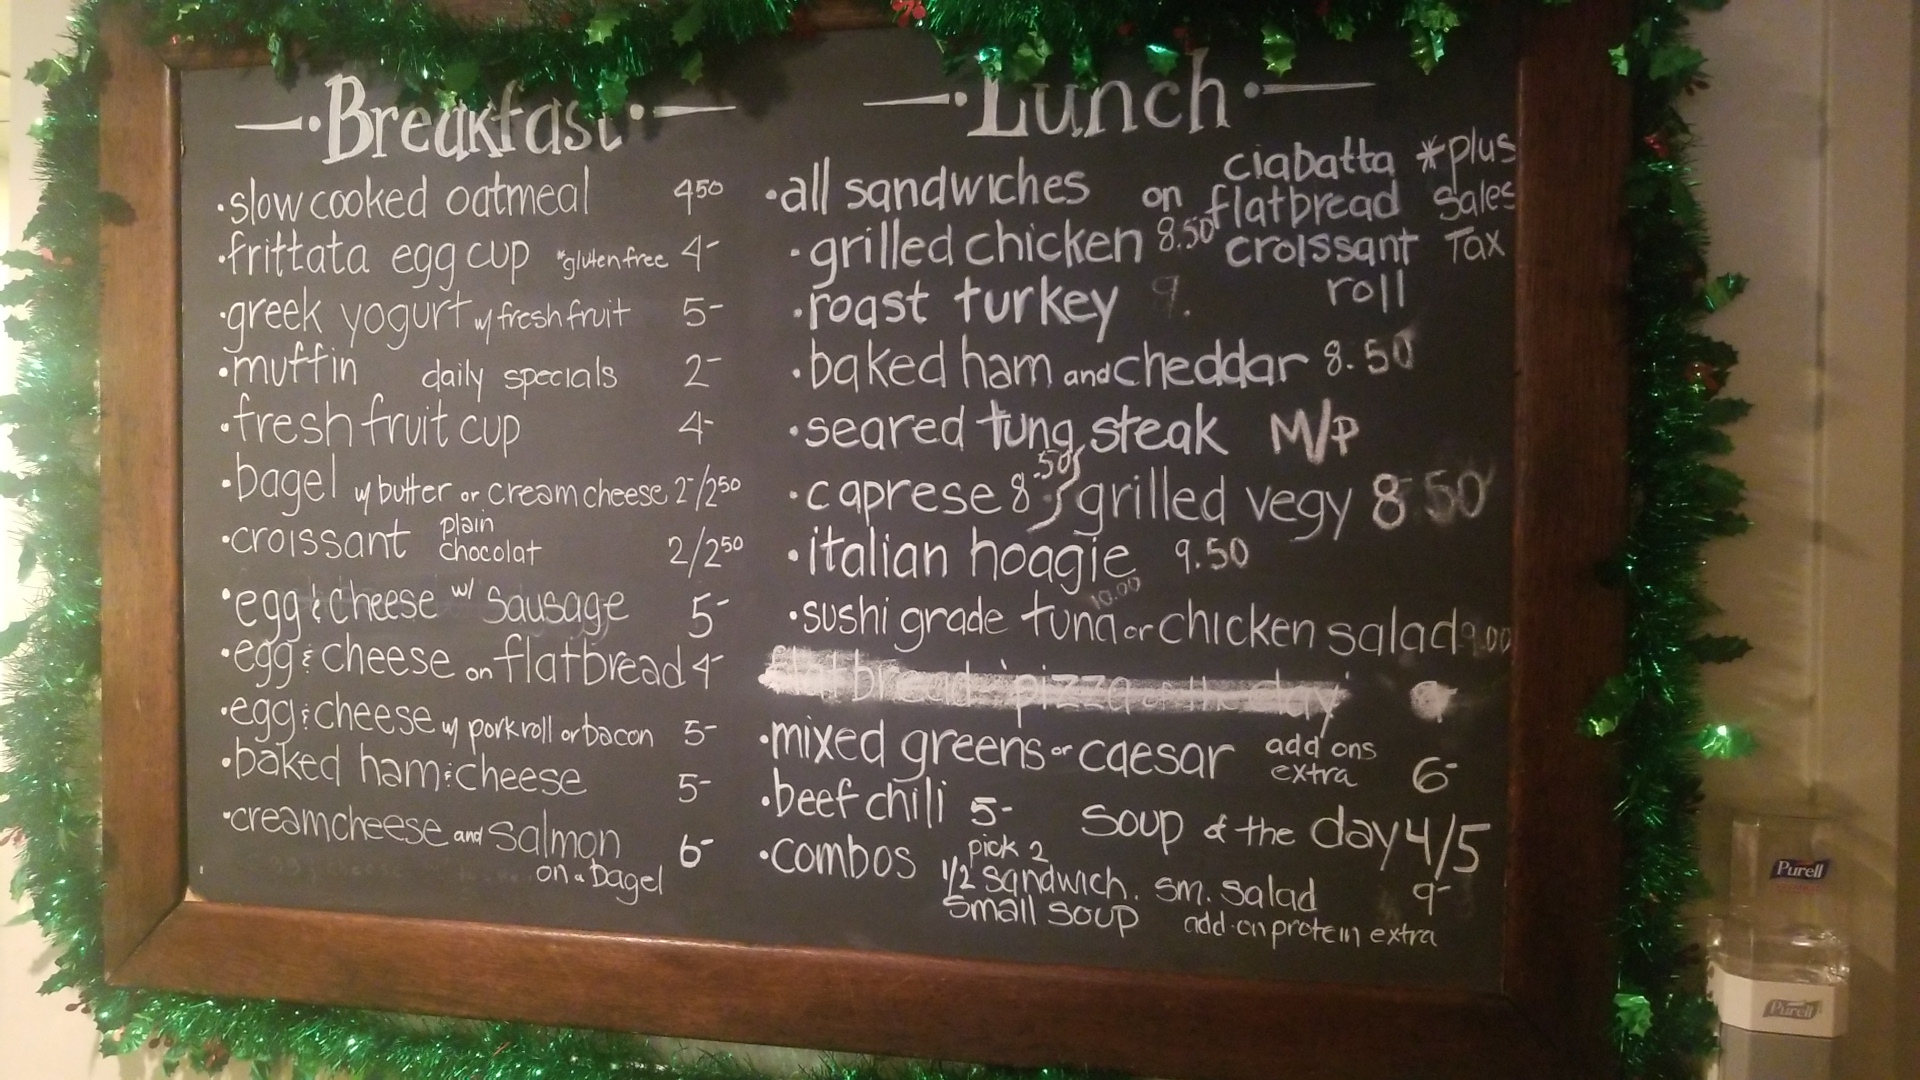 Breakfast
·slow cooked oatmeal 4 50
·frittata egg cup *gluten free 4-
·greek yogurt w/ fresh fruit 5-
·muffin daily specials 2-
·fresh fruit cup 4-
·bagel w/ butter or cream cheese 2-/2 50
·croissant plain chocolat 2/2 50
·egg & cheese w/ sausage 5-
·egg & cheese on flatbread 4-
·egg & cheese w/ pork roll or bacon 5-
·baked ham & cheese 5-
·creamcheese and salmon 6-
on a bagel
Lunch
·all sandwiches on ciabatta flatbread croissant roll
*plus sales Tax
·grilled chicken 8.50
·roast turkey 9.
·baked ham and cheddar 8.50
·seared tuna steak M/P
·caprese 8.50 grilled vegy 8 50
·italian hoagie 9.50
·sushi grade tuna 10.00 or chicken salad 9.00
flatbread pizza of the day
·mixed greens or caesar add ons extra 6-
·beef chili 5- Soup of the day 4/5
·combos pick 2
1/2 sandwich. sm. salad 9-
small soup add-on protein extra
Purell
Purell